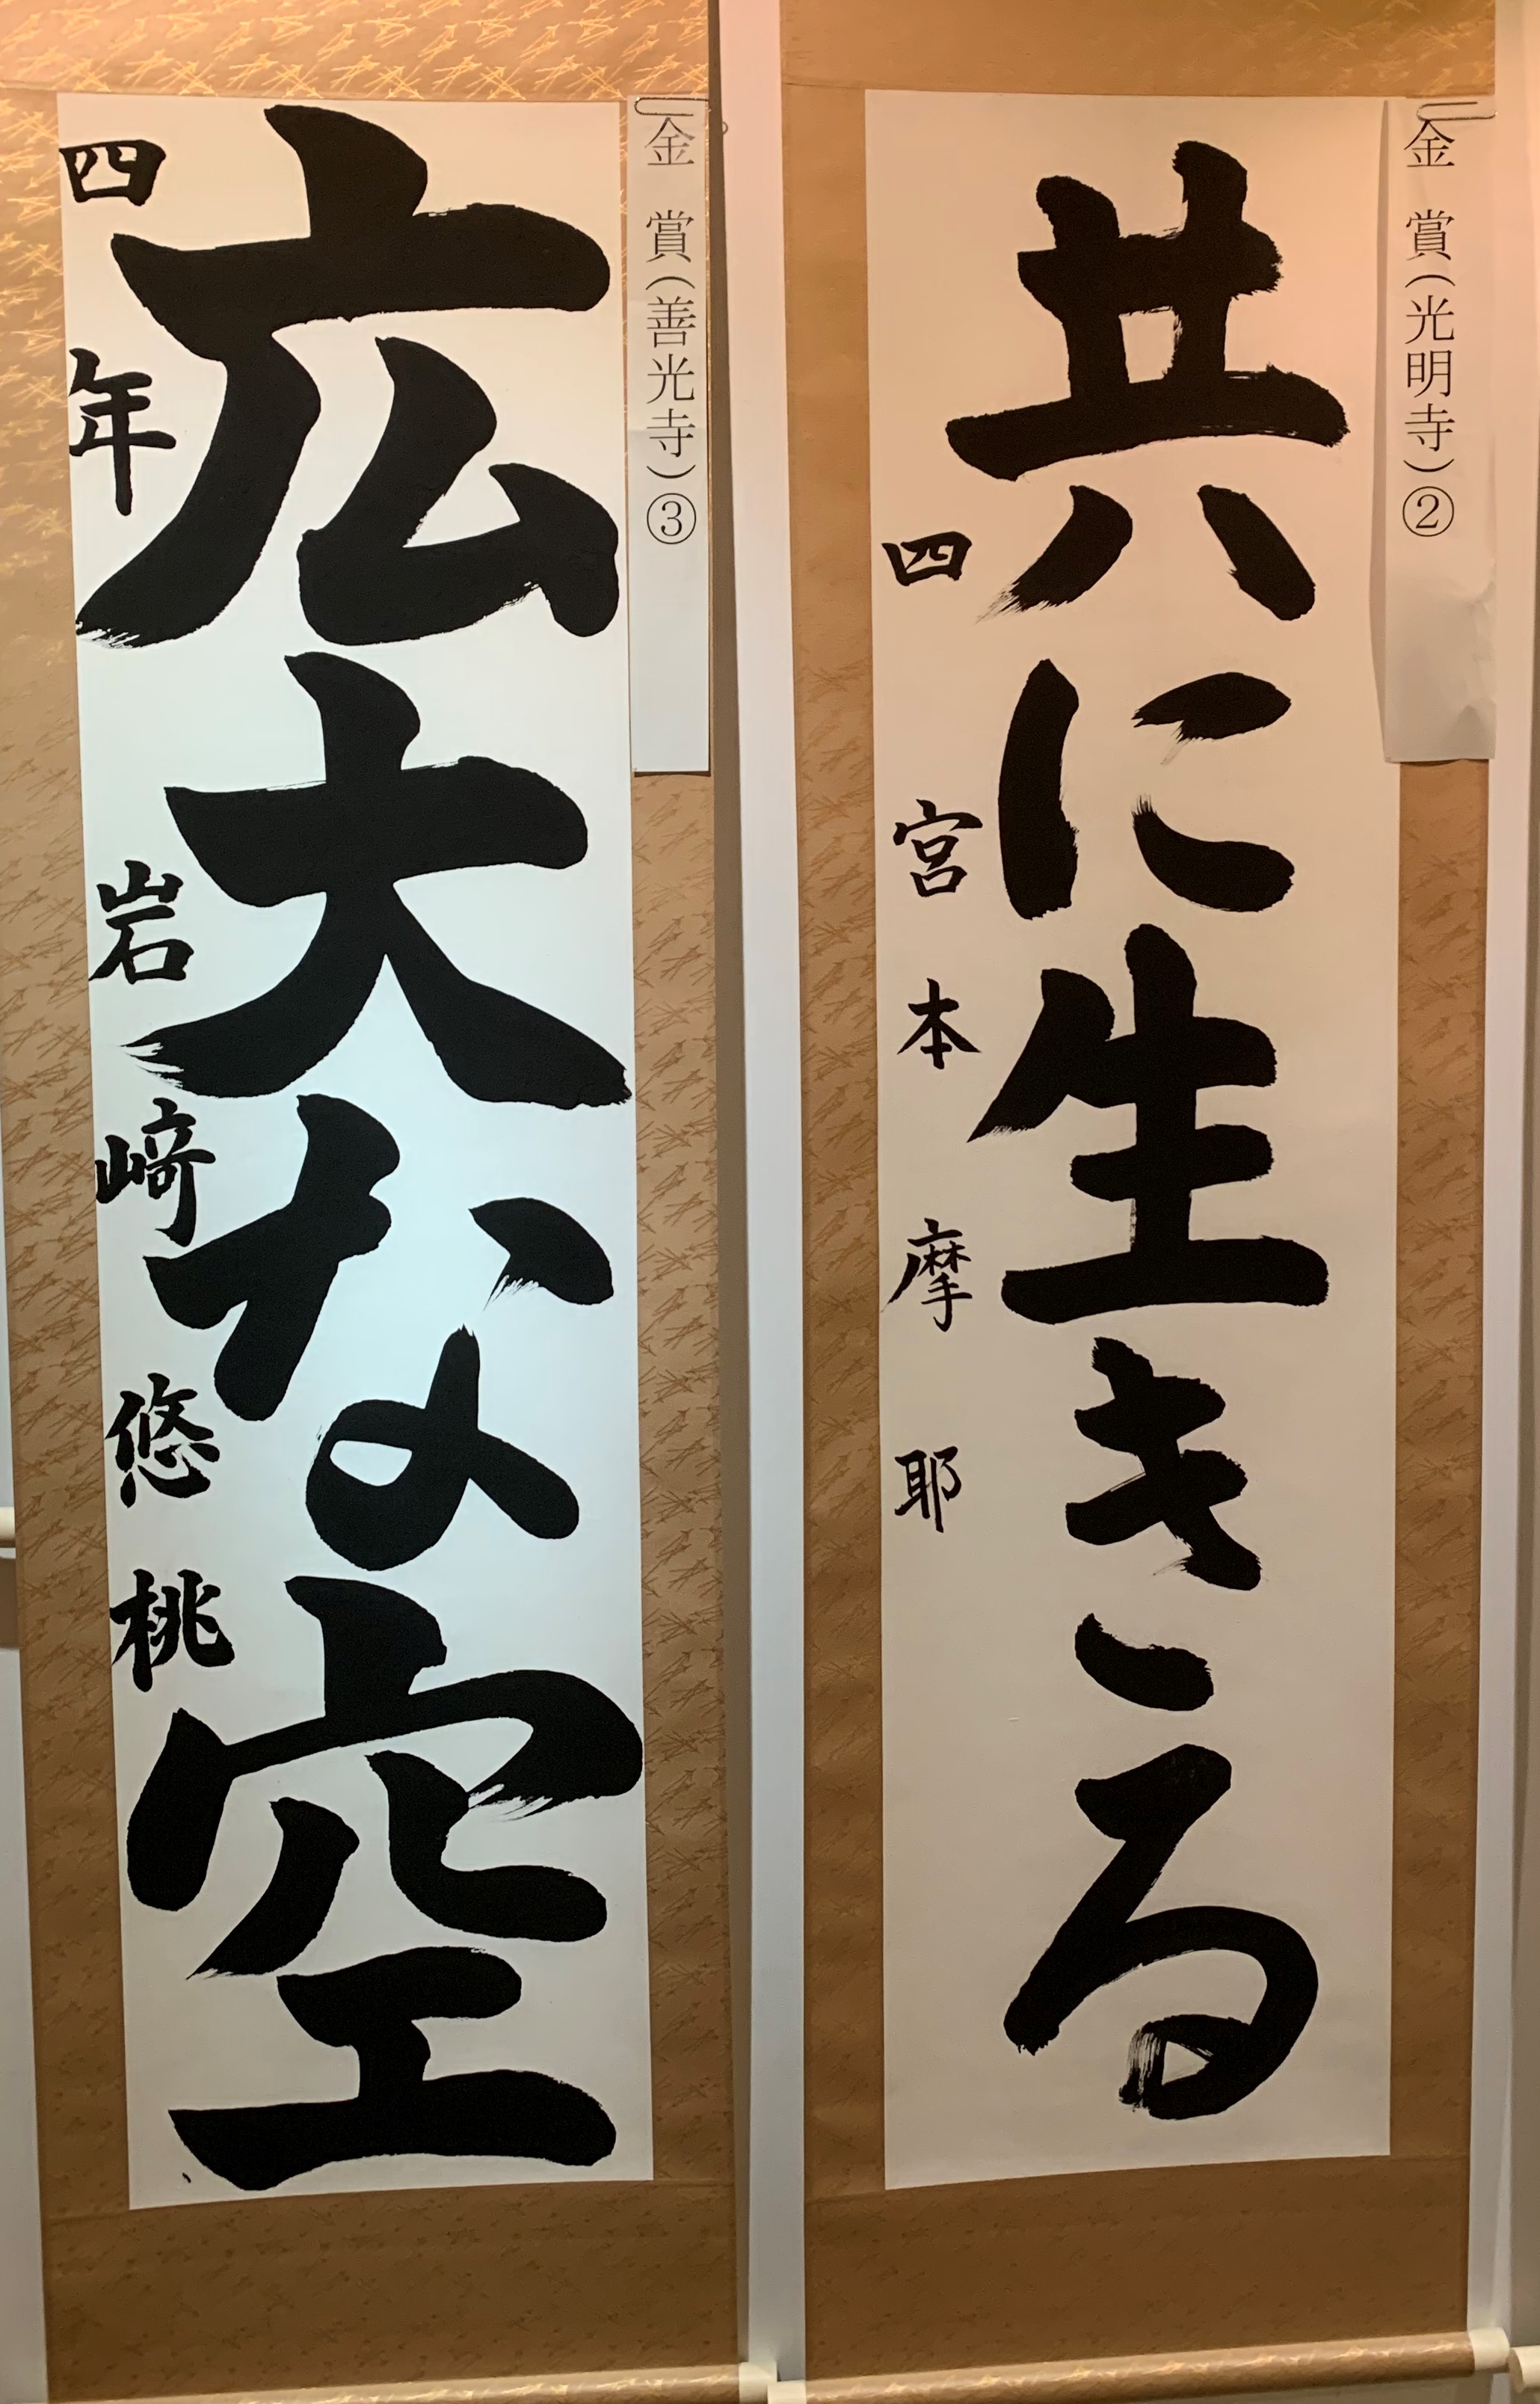 金賞(光明寺)②
共に生きる
四 宮本摩耶
金賞(善光寺)③
広大な空
四年 岩﨑悠桃